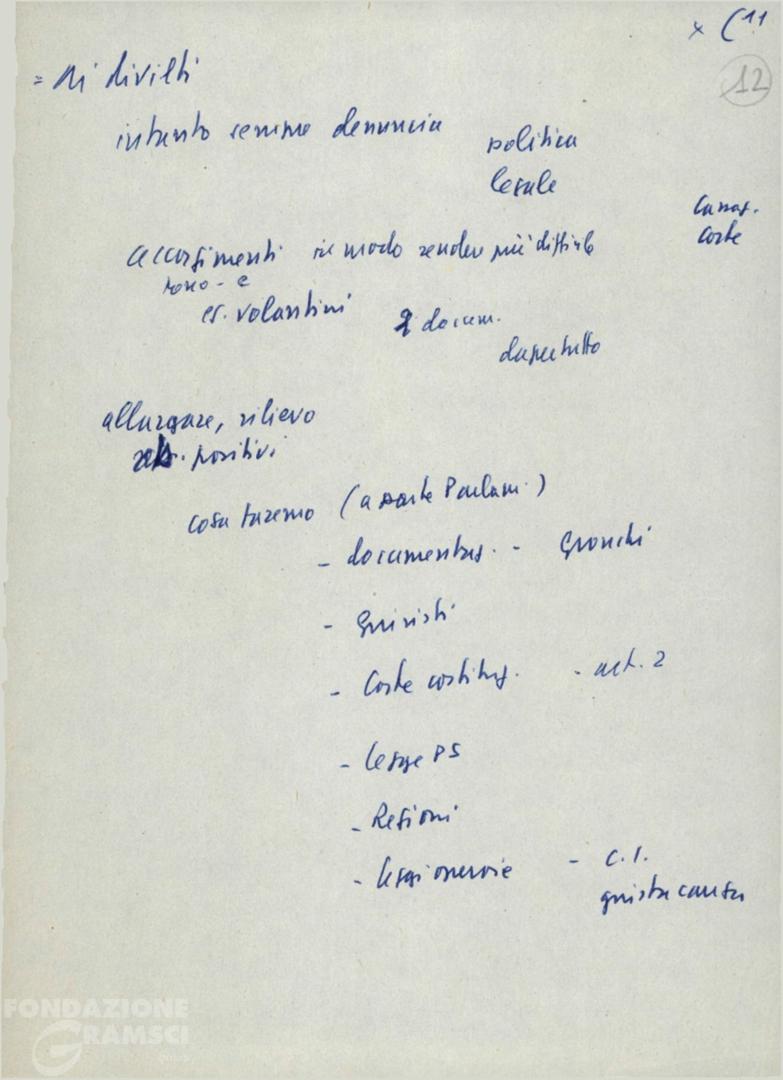 x (11
12
= Ai divieti
intanto sempre denuncia politica
legale
Cassaz.
Corte
accorgimenti in modo rendere più difficile
es. volantini docum.
dapertutto
allargare, rilievo
positivi
cosa faremo (a parte Parlam.)
- documentaz. - Gronchi
- giuristi
- Corte costituz. - art. 2
- legge PS
- Regioni
- leggi operaie - C.I.
giusta causa
FONDAZIONE
GRAMSCI